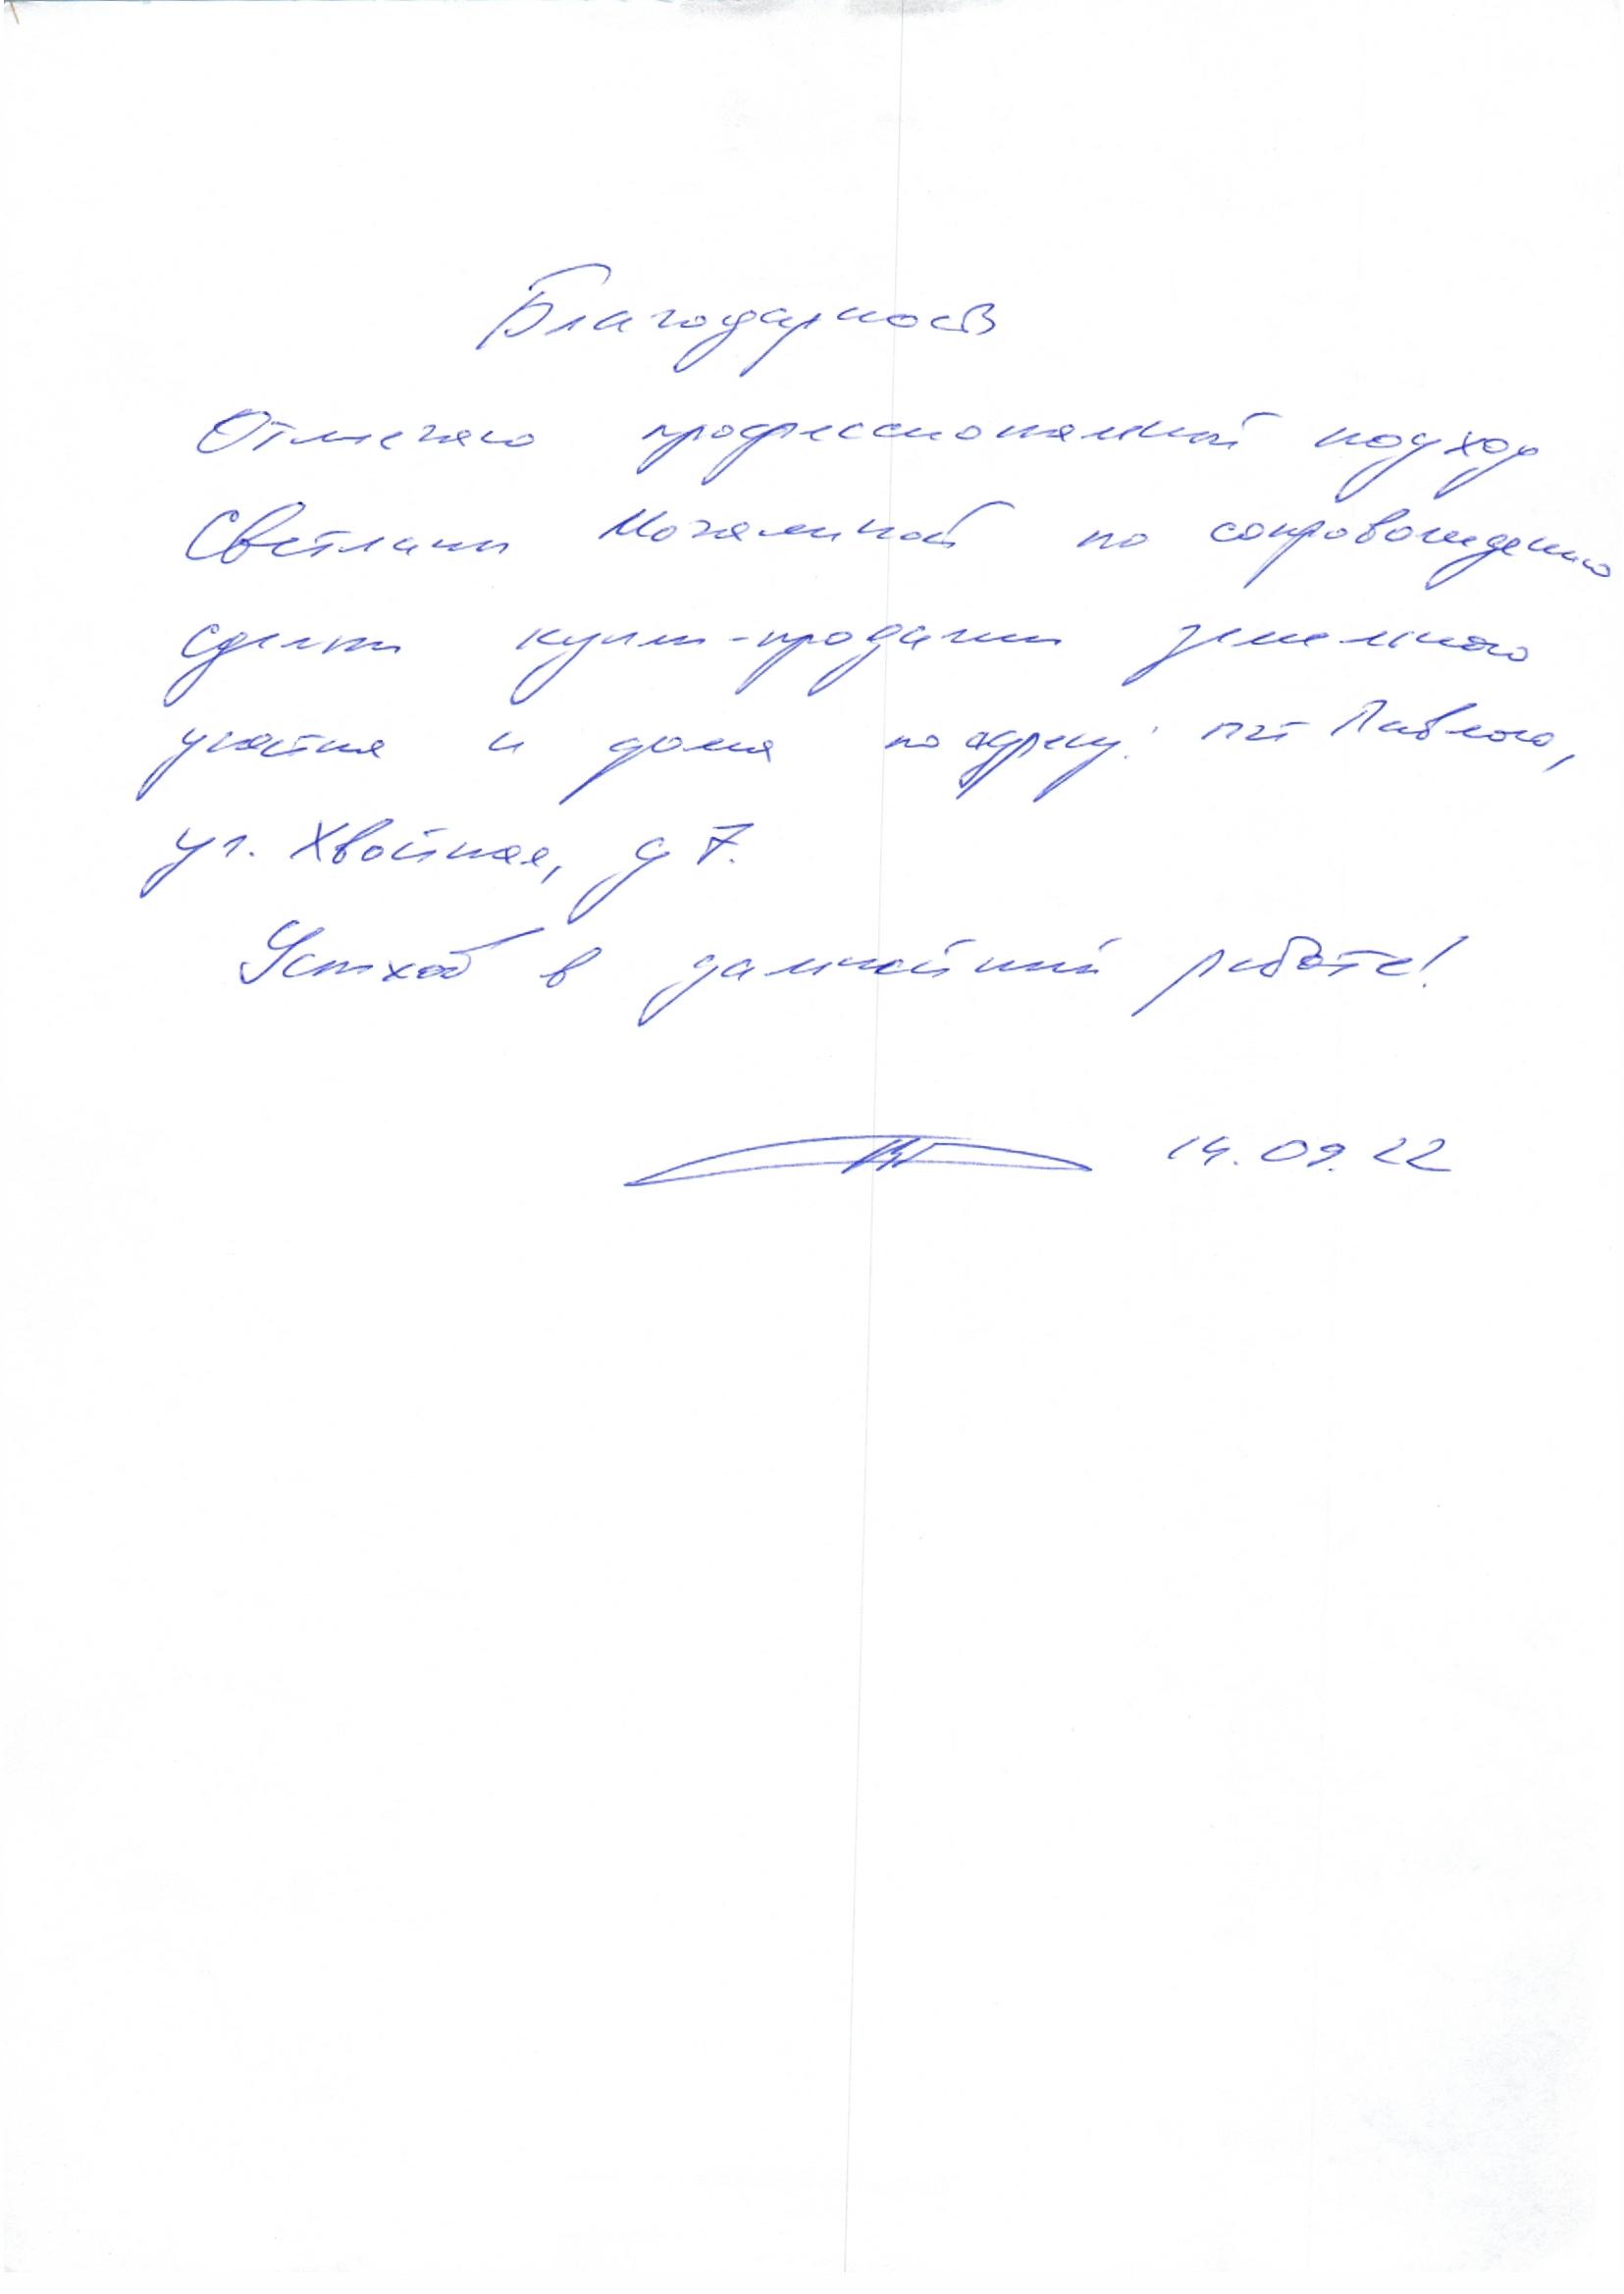 Благодарность
Отмечаю профессиональный подход
Светланы Мочалиной по сопровождению
сделки купли-продажи земельного
участка и дома по адресу: пгт Павлово,
ул. Хвойная, д 7.
Успехов в дальнейшей работе!
14.09.22